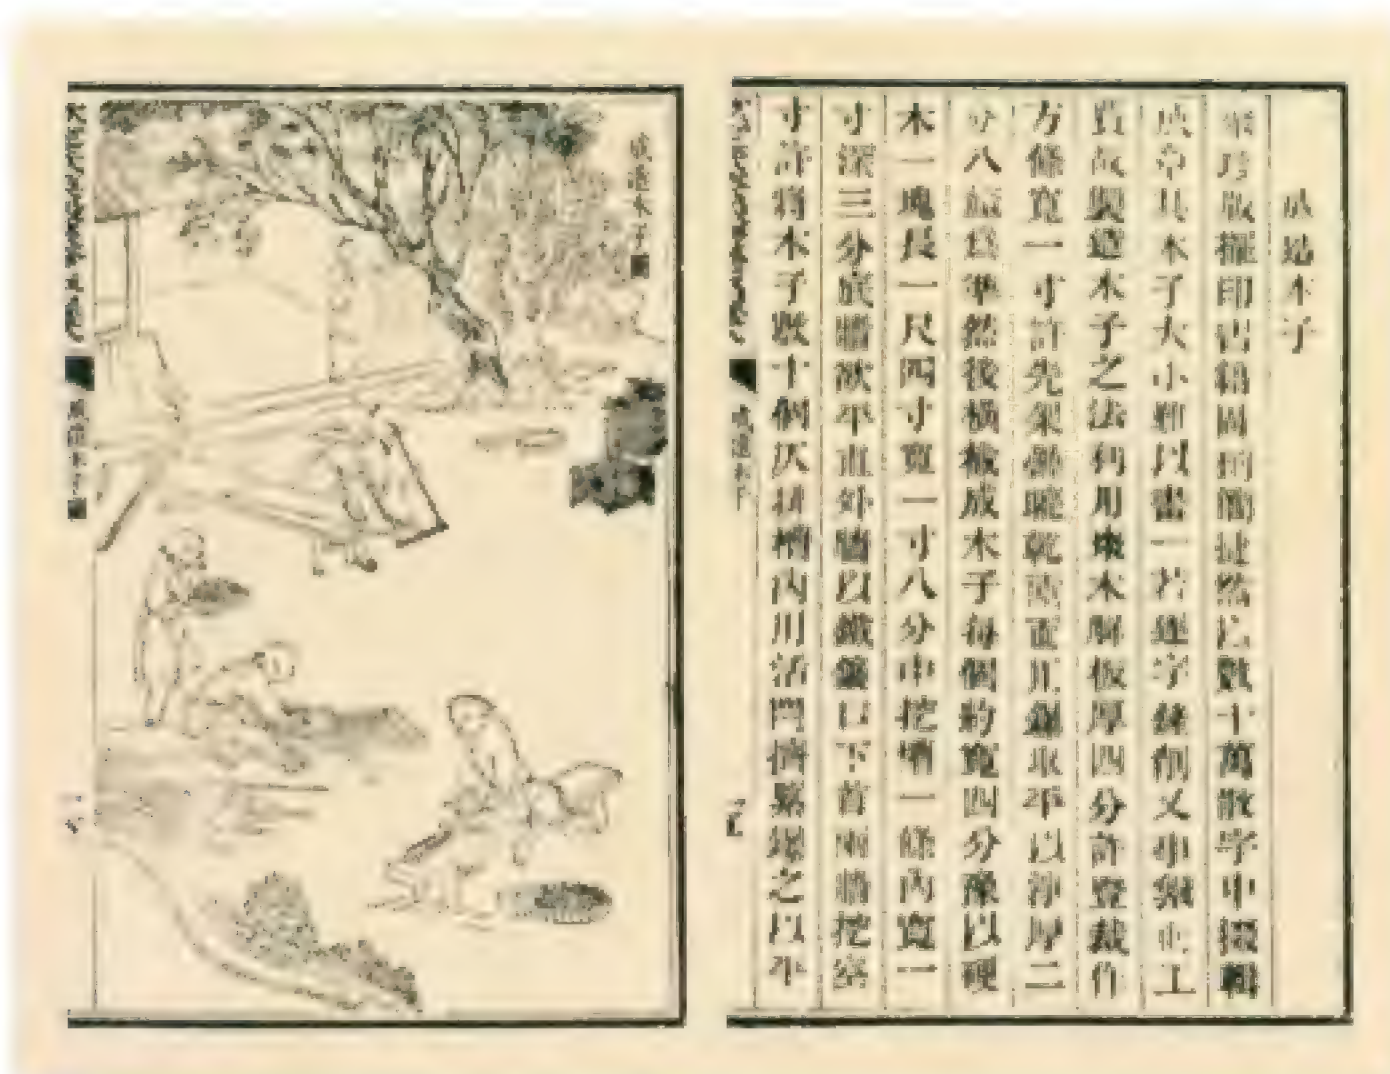 成造木子
聚珍版擺印書籍固簡捷然以數十萬散字中掇輯
成章其木子大小難以畫一若逐字削又事煩工
費故製造木子之法利用棗木解板厚四分許豎裁作
方條寬一寸許先架疊晾乾兩面用鉋取平以淨厚二
分八釐爲準然後橫截成木子每個約寬四分豫以硬
木一塊長一尺四寸寬一寸八分中挖槽一條內寬一
寸深三分底牆欲平直外牆以鐵鑲口下首兩牆挖空
寸許將木子數十個仄排槽內用活閂擠緊鉋之以平
成造木子
成造木子圖
成造木子圖